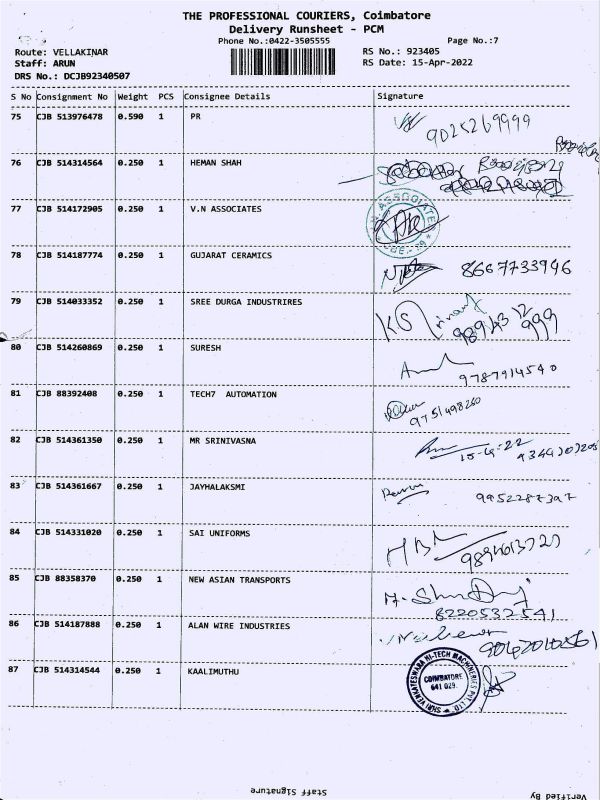 THE PROFESSIONAL COURIERS, Coimbatore
Delivery Runsheet - PCM
Phone No.:0422-3505555
Page No.:7
Route: VELLAKINAR
RS No.: 923405
Staff: ARUN
RS Date: 15-Apr-2022
DRS No.: DCJB92340507
S No Consignment No Weight PCS Consignee Details Signature
75 CJB 513976478 0.590 1 PR 9025269999
76 CJB 514314564 0.250 1 HEMAN SHAH
77 CJB 514172905 0.250 1 V.N ASSOCIATES
78 CJB 514187774 0.250 1 GUJARAT CERAMICS 8667733946
79 CJB 514033352 0.250 1 SREE DURGA INDUSTRIRES
80 CJB 514260869 0.250 1 SURESH 9787914540
81 CJB 88392408 0.250 1 TECH7 AUTOMATION 9751498260
82 CJB 514361350 0.250 1 MR SRINIVASNA 15-4-22
83 CJB 514361667 0.250 1 JAYHALAKSMI
84 CJB 514331020 0.250 1 SAI UNIFORMS
85 CJB 88358370 0.250 1 NEW ASIAN TRANSPORTS 8220532541
86 CJB 514187888 0.250 1 ALAN WIRE INDUSTRIES
87 CJB 514314544 0.250 1 KAALIMUTHU
SHRI VENKATESWARA HI-TECH MACHINERIES PVT LTD
COIMBATORE
641 029.
Staff Signature
Verified By